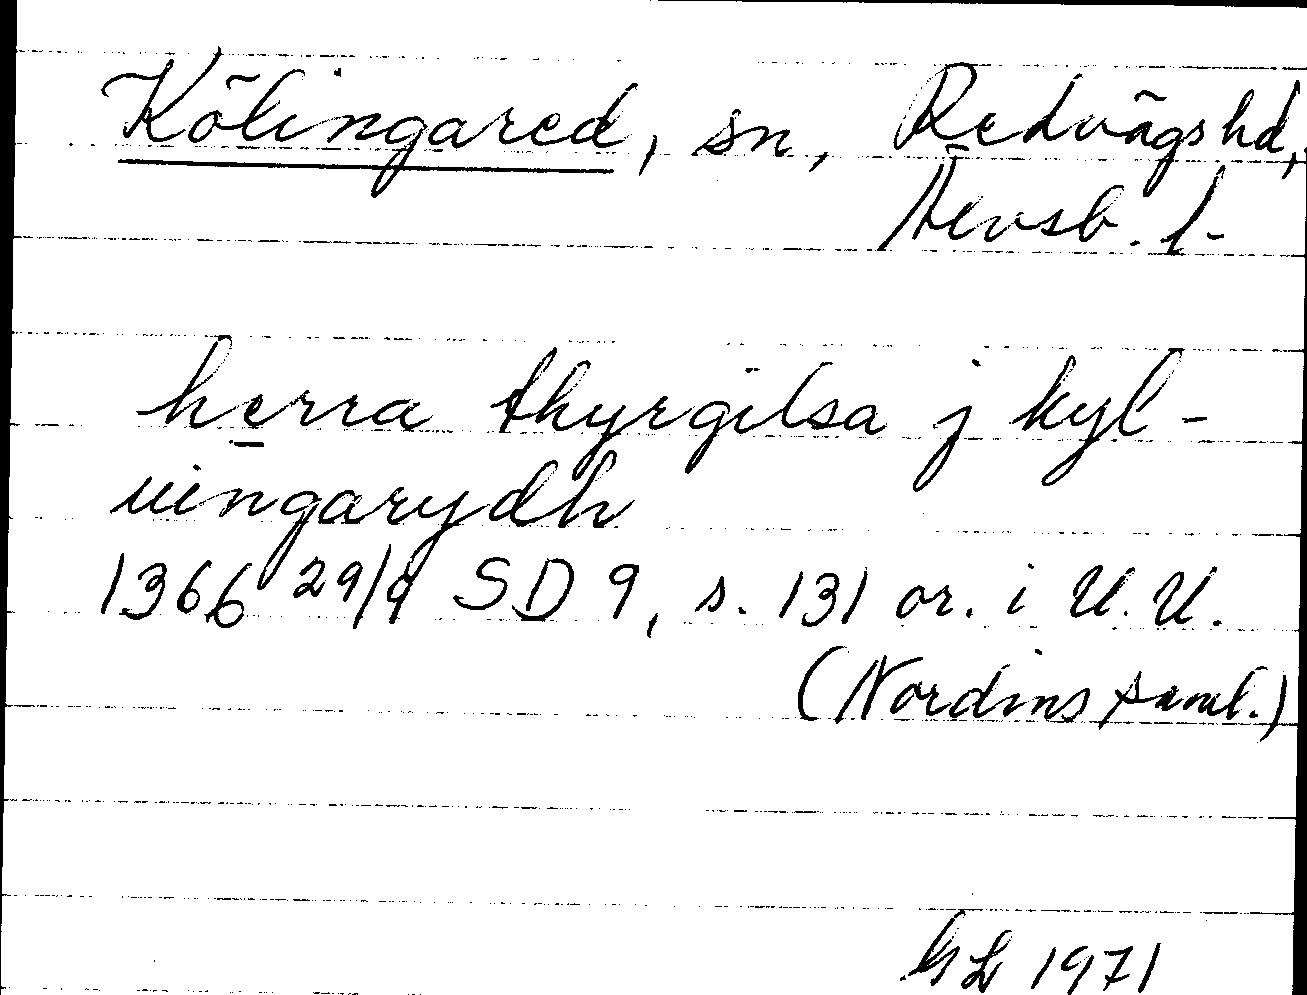 Kölingared, sn, Redvägs hd,
Älvsb. l.
herra thyrgilsa j kyl-
uingarydh
1366 29/9 SD 9, s. 131 or. i U.U.
(Nordins saml.)
GL 1971